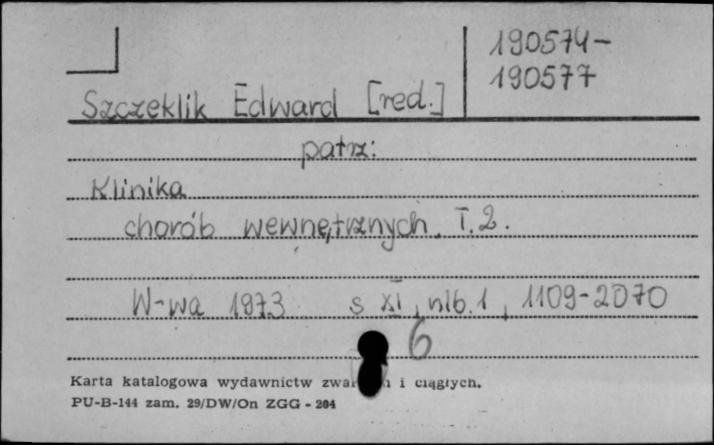 190574-
190577
Szczeklik Edward [red.]
patrz:
Klinika
chorób wewnętrznych. T. 2.
W-wa 1973 s XI, nlb. 1, 1109-2070
6
Karta katalogowa wydawnictw i ciągłych.
PU-B-144 zam. 29/DW/On ZGG - 204